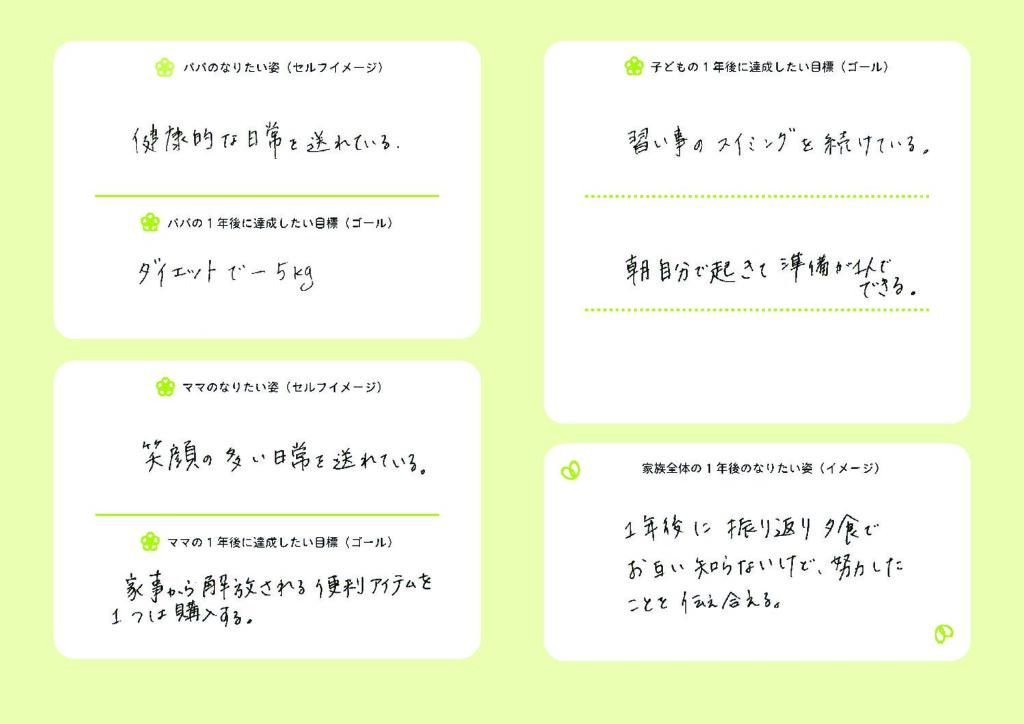 パパのなりたい姿（セルフイメージ）
健康的な日常を送れている.
パパの1年後に達成したい目標（ゴール）
ダイエットで－5kg
ママのなりたい姿（セルフイメージ）
笑顔の多い日常を送れている。
ママの1年後に達成したい目標（ゴール）
家事から解放される便利アイテムを
1つは購入する。
子どもの1年後に達成したい目標（ゴール）
習い事のスイミングを続けている。
朝自分で起きて準備が1人で
できる。
家族全体の1年後のなりたい姿（イメージ）
1年後に振り返り夕食で
お互い知らないけど、努力した
ことを伝え合える。